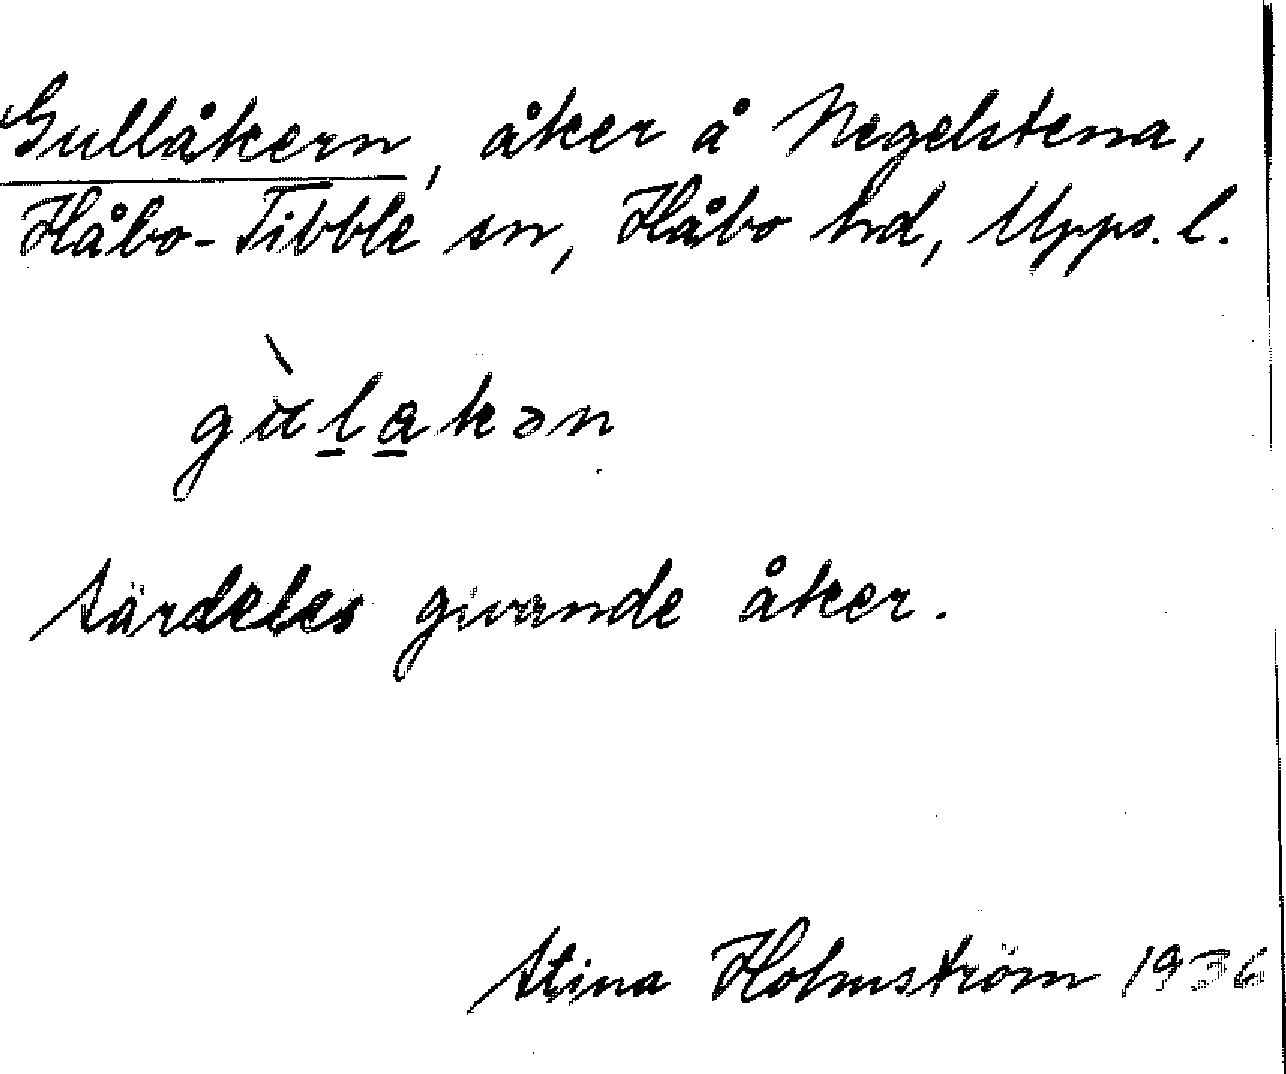 Gullåkern, åker å Negelstena,
Håbo-Tibble sn, Håbo hd, Upps. l.
gùlakən
särdeles givande åker.
Stina Holmström 1936